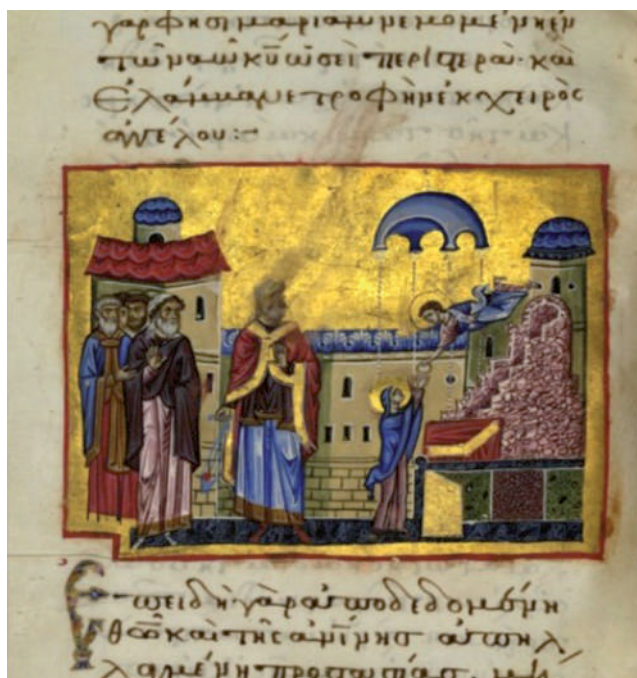 γὰρ φησὶ μαριὰμ νεμομένη ἐν
τῶ ναῶ κ̅υ̅ ὡσεὶ περιστερὰ· καὶ
ἐλάμβανε τροφὴν ἐκ χειρὸς
ἀγγέλου:-
Ἐπειδὴ γὰρ ἀποδεδομένη
θ̅ῶ̅ καὶ τῆς ἀ̅ν̅ίνης ἀπηλ
λαγμένη προστασίας,